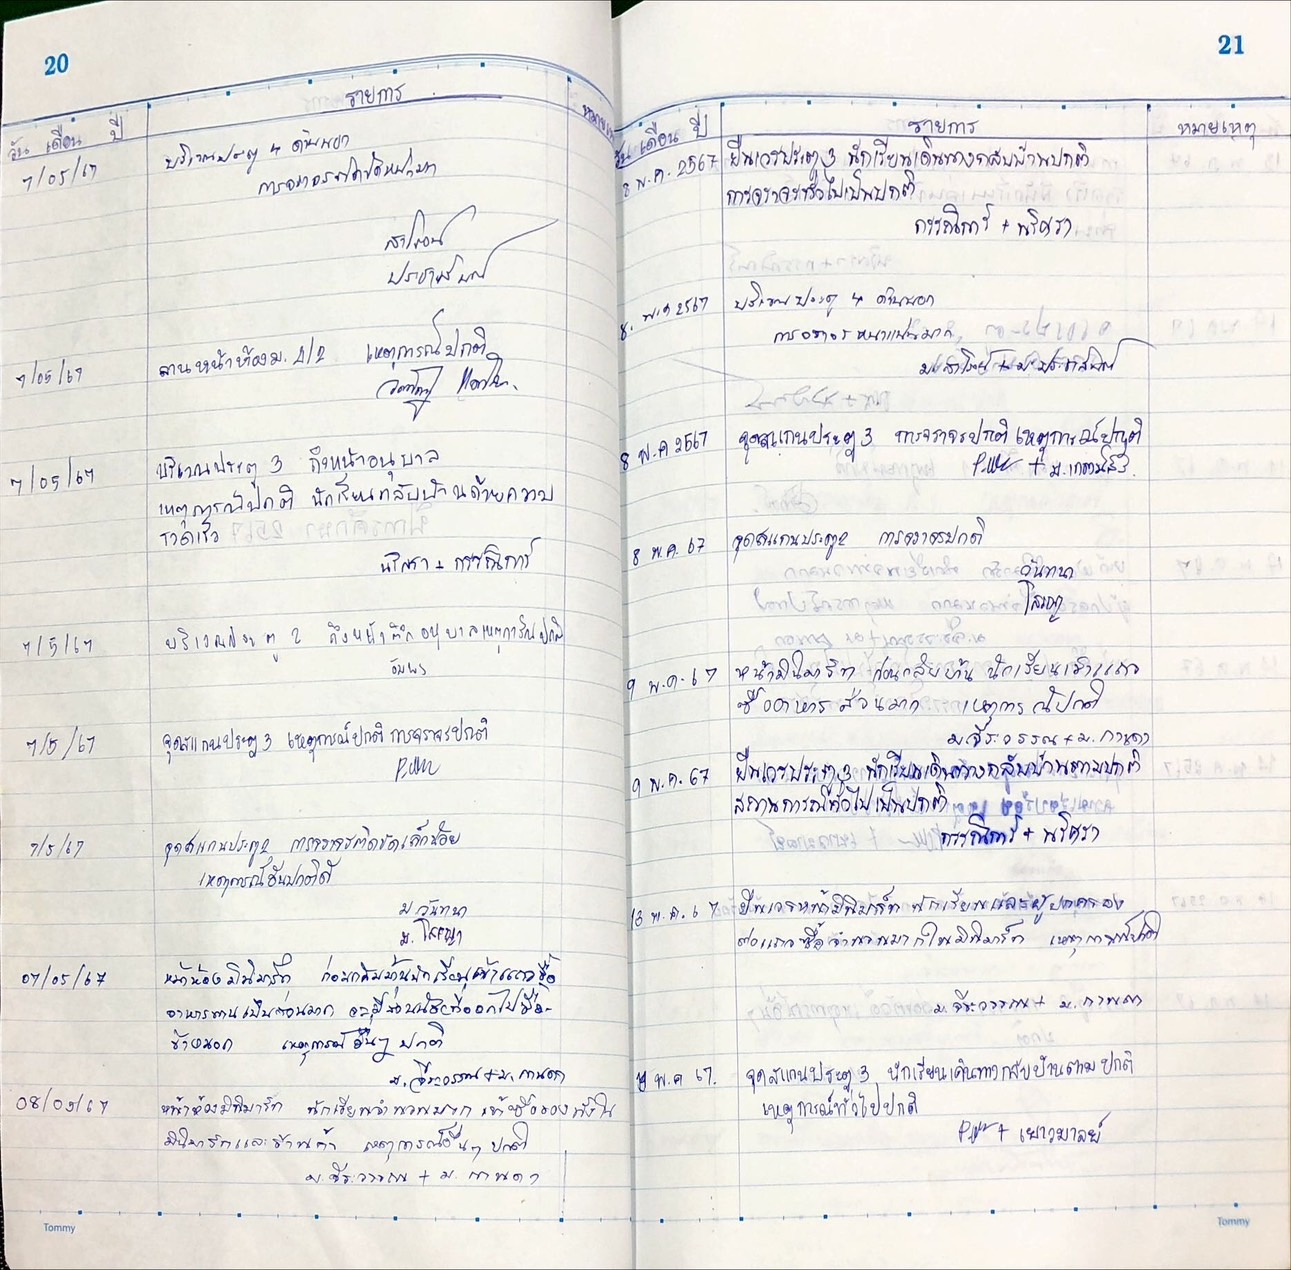 20
วัน เดือน ปี
รายการ
7/05/67
บริเวณประตู 4 ด้านนอก
การจราจรติดขัด
7/05/67
ลานหน้าห้อง ม. 2/2 เหตุการณ์ปกติ
7/05/67
บริเวณประตู 3 ถึงหน้าอนุบาล
เหตุการณ์ปกติ นักเรียนกลับบ้านด้วยความ
รวดเร็ว
นริศรา + กรรณิการ์
7/5/67
บริเวณประตู 2 ถึงหน้าตึกอนุบาลเหตุการณ์ปกติ
อัมพร
7/5/67
จุดสแกนประตู 3 เหตุการณ์ปกติ การจราจรปกติ
7/5/67
จุดสแกนประตู 2 การจราจรติดขัดเล็กน้อย
เหตุการณ์อื่นปกติดี
ม.วันทนา
ม.โสภา
07/05/67
หน้าห้องมินิมาร์ท ก่อนกลับบ้านนักเรียนเข้าแถวซื้อ
อาหารทานเป็นส่วนมาก จะมีส่วนน้อยที่ออกไปซื้อ
ข้างนอก เหตุการณ์อื่นๆ ปกติ
ม.จีระวรรณ + ม.กานดา
08/05/67
หน้าห้องมินิมาร์ท นักเรียนจำนวนมาก เข้าซื้อของทั้งใน
มินิมาร์ทและร้านค้า เหตุการณ์อื่นๆ ปกติ
ม.จีระวรรณ + ม.กานดา
Tommy
21
วัน เดือน ปี
รายการ
หมายเหตุ
8 พ.ค. 2567
ยืนเวรประตู 3 นักเรียนเดินทางกลับบ้านปกติ
การจราจรทั่วไปเป็นปกติ
กรรณิการ์ + นริศรา
8. พ.ค 2567
บริเวณประตู 4 ด้านนอก
การจราจรหนาแน่นมาก
8 พ.ค 2567
จุดสแกนประตู 3 การจราจรปกติ เหตุการณ์ปกติ
8 พ.ค. 67
จุดสแกนประตู 2 การจราจรปกติ
วันทนา
โสภา
9 พ.ค. 67
หน้ามินิมาร์ท ก่อนกลับบ้าน นักเรียนเข้าแถว
ซื้ออาหารส่วนมาก เหตุการณ์ปกติ
ม.จีระวรรณ + ม.กานดา
9 พ.ค. 67
ยืนเวรประตู 3 นักเรียนเดินทางกลับบ้านตามปกติ
สถานการณ์ทั่วไปเป็นปกติ
กรรณิการ์ + นริศรา
13 พ.ค. 67
ยืนเวรหน้ามินิมาร์ท นักเรียนและผู้ปกครอง
ต่อแถวซื้อจำนวนมากในมินิมาร์ท เหตุการณ์ปกติ
ม.จีระวรรณ + ม.กานดา
พ.ค 67.
จุดสแกนประตู 3 นักเรียนเดินทางกลับบ้านตามปกติ
เหตุการณ์ทั่วไปปกติ
+ เยาวมาลย์
Tommy